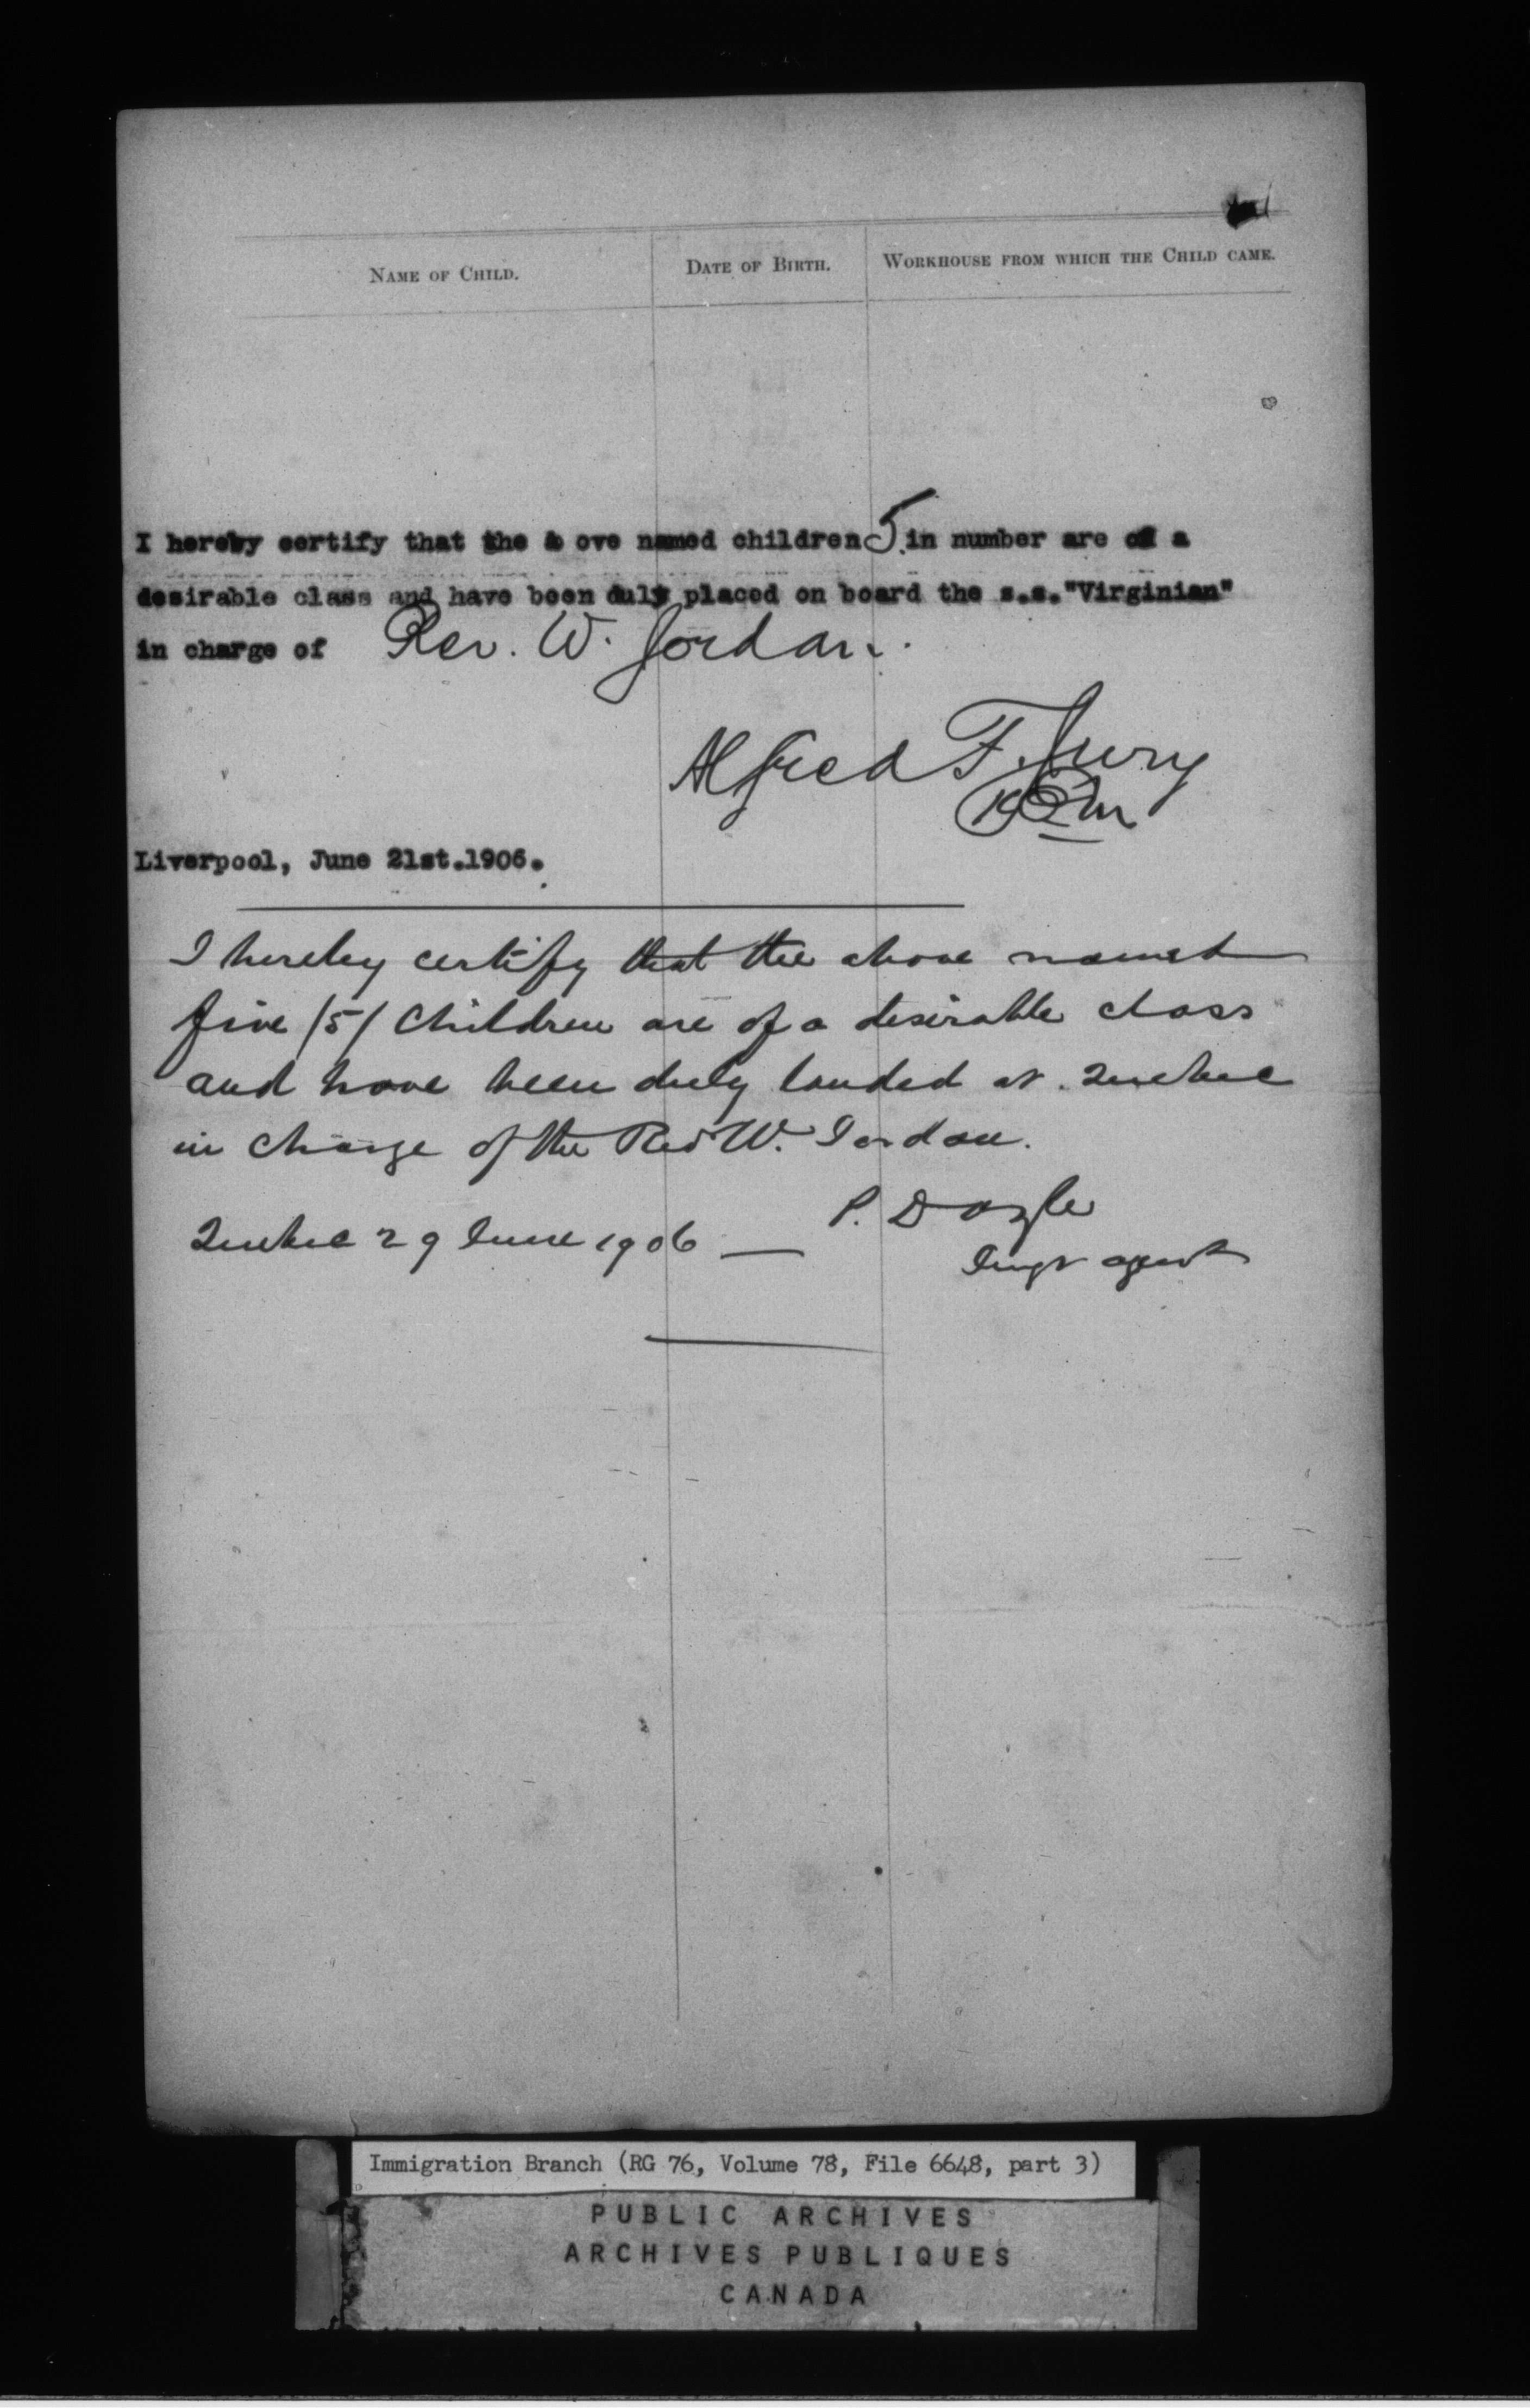 NAME OF CHILD. DATE OF BIRTH. WORKHOUSE FROM WHICH THE CHILD CAME.
I hereby certify that the a ove named children 5 in number are of a
desirable class and have been duly placed on board the s.s."Virginian"
in charge of Rev. W. Jordan.
Alfred F. Jury
Liverpool, June 21st.1906.
I hereby certify that the above named
five /5/ Children are of a desirable class
and have been duly landed at Quebec
in charge of the Rev W. Jordan.
Quebec 29 June 1906 — P. Doyle
Imgt agent
Immigration Branch (RG 76, Volume 78, File 6648, part 3)
PUBLIC ARCHIVES
ARCHIVES PUBLIQUES
CANADA